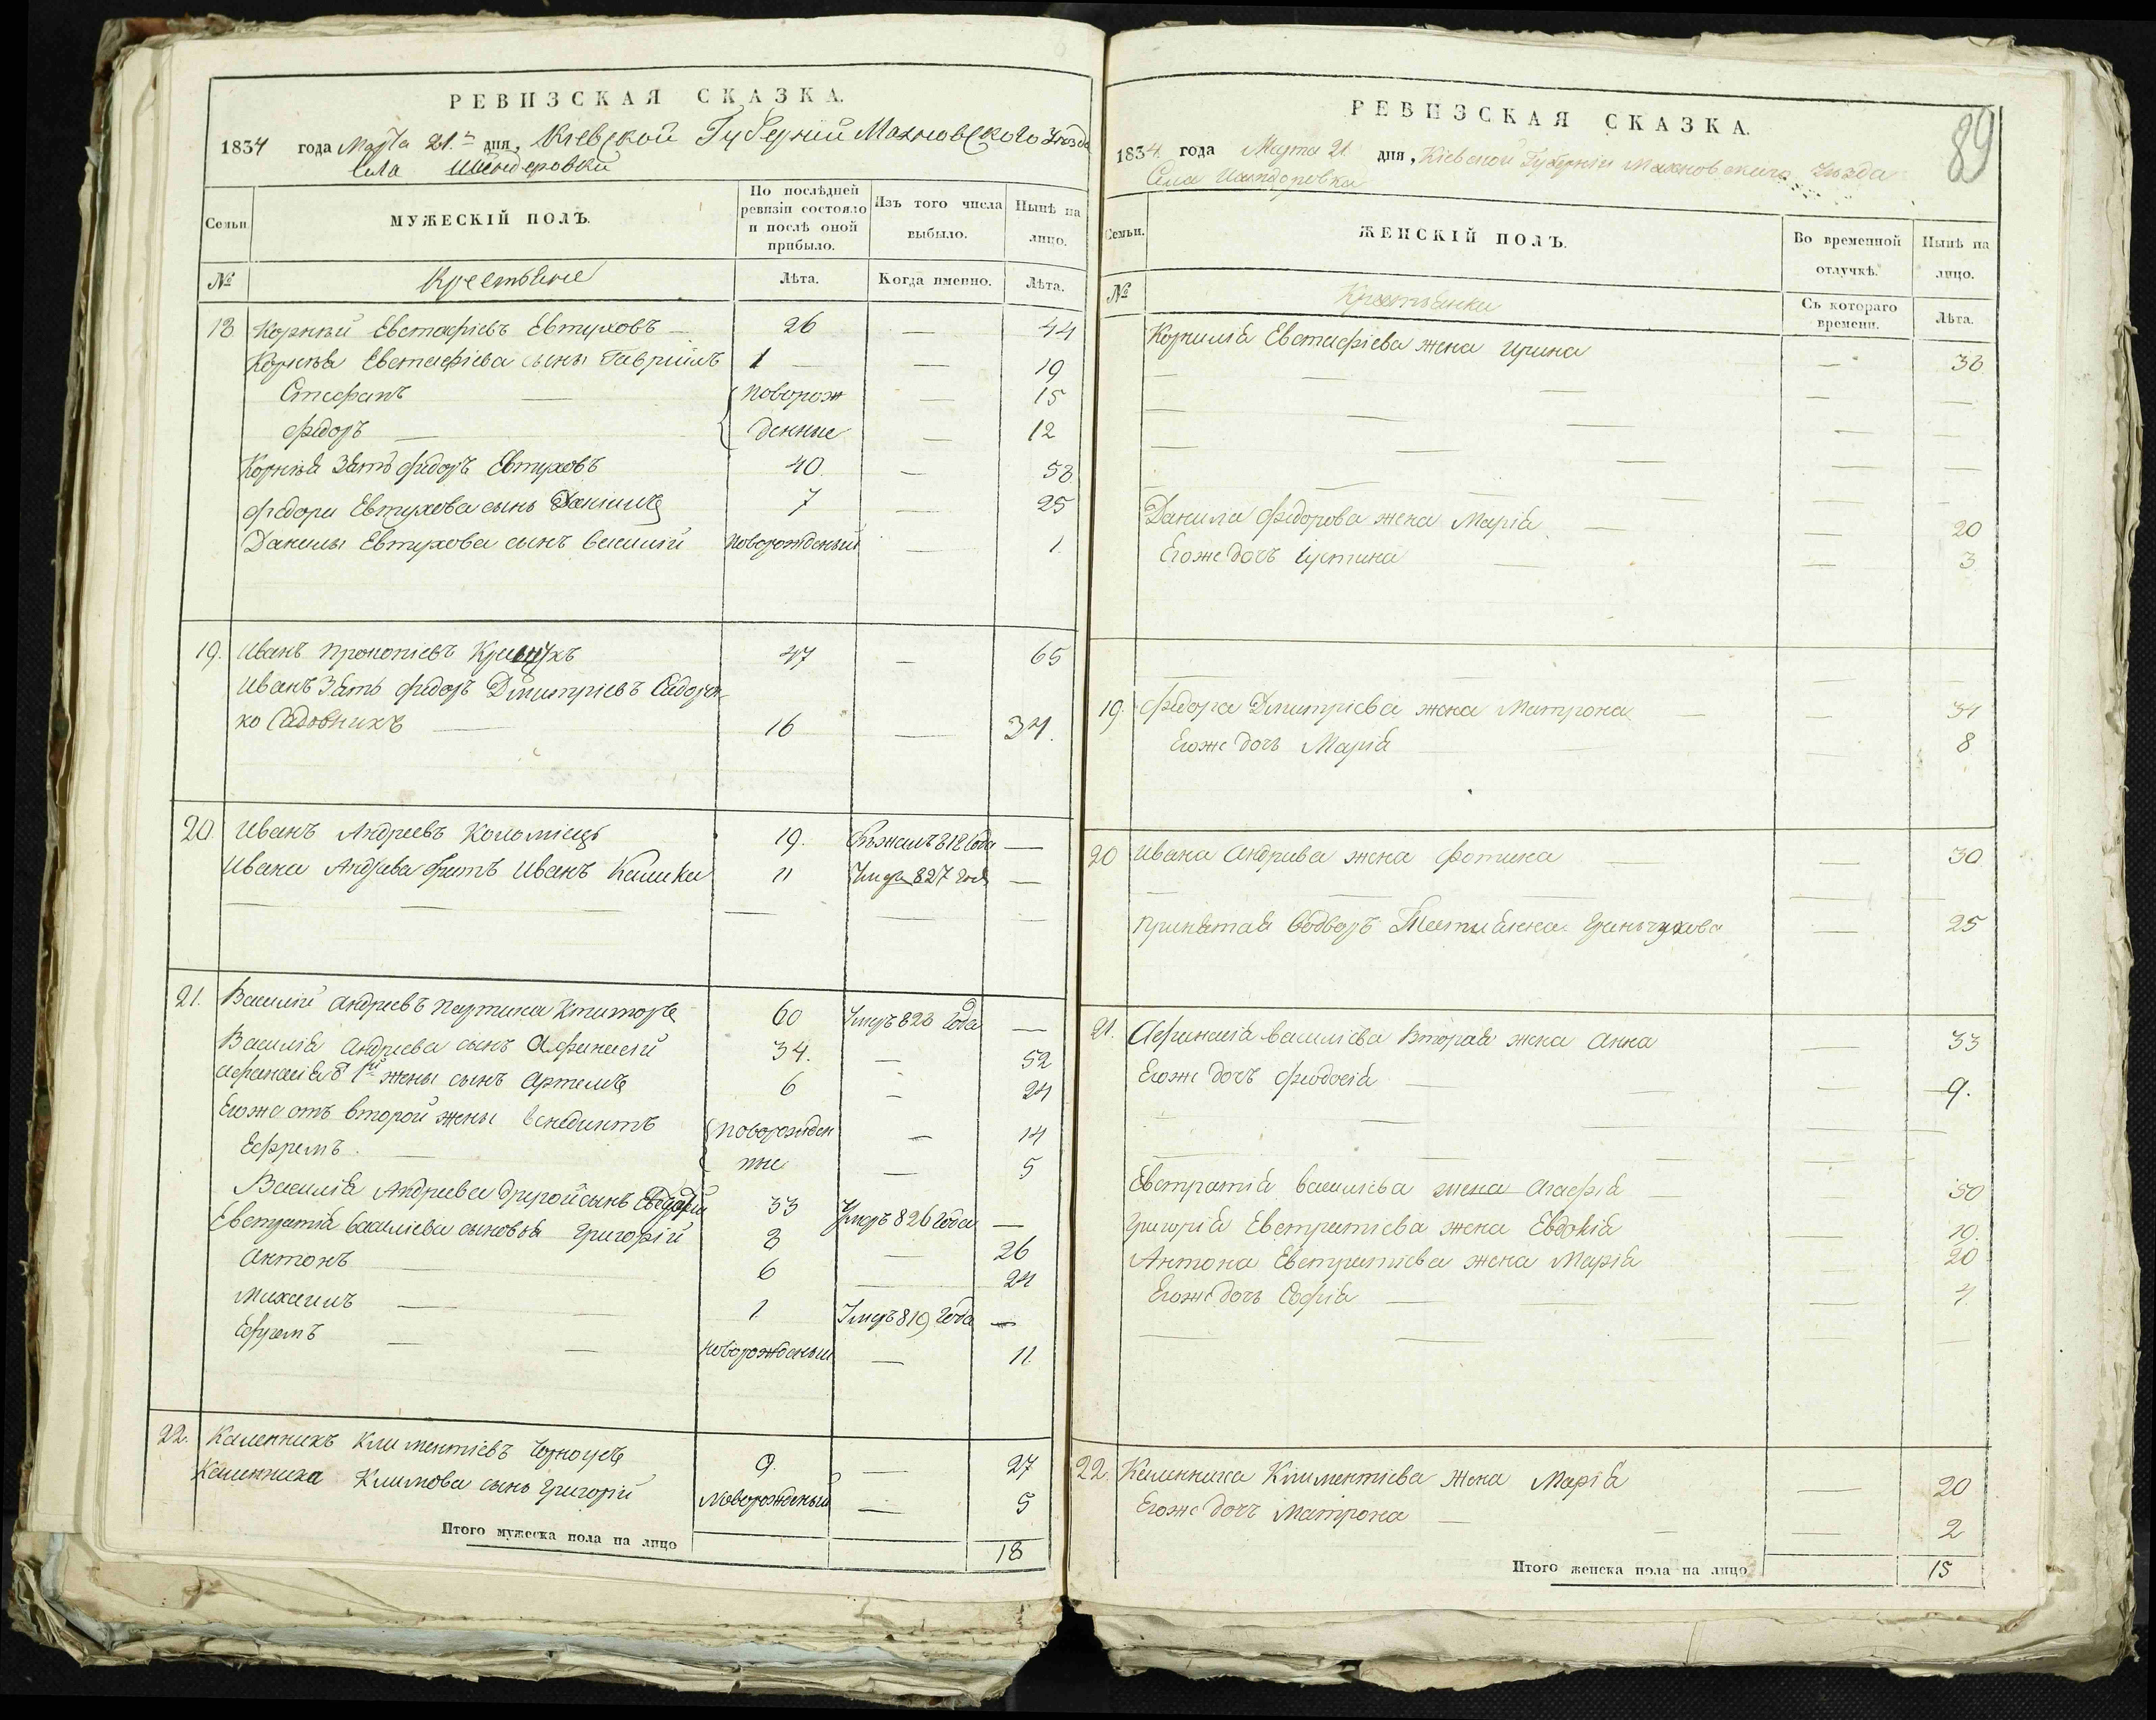 РЕВИЗСКАЯ СКАЗКА.
1834 года Марта 21.го дня, Кіевской Губерніи Махновского Уѣзда
Села Шендеровки
Семьи. МУЖЕСКІЙ ПОЛЪ. По послѣдней ревизіи состояло и послѣ оной прибыло. Изъ того числа выбыло. Нынѣ на лицо.
№ Крестьяне Лѣта. Когда именно. Лѣта.
18 Корнѣй Евстафіевъ Евтуховъ — 26 — 44
Корнѣя Евстафіева сыны Гавріилъ 1 — 19
Стефанъ — новорож — 15
Федоръ — денные — 12
Корнѣя Зять Федоръ Евтуховъ 40. — 58
Федора Евтухова сынъ Даніилъ 7 — 25
Данилы Евтухова сынъ Василій новорожденый — 1.
19. Иванъ Прокопіевъ 47 — 65
Иванъ Зять Федоръ Дмитріевъ Сидорен
ко Садовникъ — 16 — 34.
20. Иванъ Андреевъ Коломіецъ 19. Бѣжалъ 818 Года —
Ивана Андреева братъ Иванъ 11 Умеръ 827 года —
21. Василій Андреевъ Ктиторъ 60 Умеръ 828 Года —
Василія Андреева сынъ Афанасій 34. — 52
Афанасія 1й жены сынъ Артемъ 6 — 24
Егоже отъ второй жены Венедиктъ новорожден — 14
Ефремъ — ные — 5
Василія Андреева другой сынъ 33 Умеръ 826 Года —
Евстратія Василіева сыновья Григорій 8 — 26
Антонъ — 6 — 24
Михаилъ — 1. Умеръ 819 Года —
Ефремъ — новорожденый — 11.
22. Калинникъ Климентіевъ 9. — 27
Калинника Климова сынъ Григорій Новорожденый — 5
Итого мужеска пола на лицо 18
89
РЕВИЗСКАЯ СКАЗКА.
1834. года Марта 21. дня, Кіевской Губерніи Махновского Уѣзда
Села Шандоровка
Семьи. ЖЕНСКІЙ ПОЛЪ. Во временной отлучкѣ. Нынѣ на лицо.
№ Крестьянки Съ котораго времени. Лѣта.
Корнилія Евстафіева жена Ирина — 38
Данила Федорова жена Марія — 20
Егоже дочь Іустина — 3
19. Федора Дмитріева жена Матрона — 34
Егоже дочь Марія — 8
20 Ивана Андреева жена Фотина — 30
Принятая Водворъ 25
21. Афанасія Василіева Вторая жена Анна — 33
Егоже дочь Феодосія — 9.
Евстратія Василіева жена Агафія — 50
Григорія Евстратіева жена Евдокія — 19.
Антона Евстратіева жена Марія — 20
Егоже дочь Софія — 4
22. Калинника Климентіева жена Марія — 20
Егоже дочь Матрона — 2
Итого женска пола на лицо 15